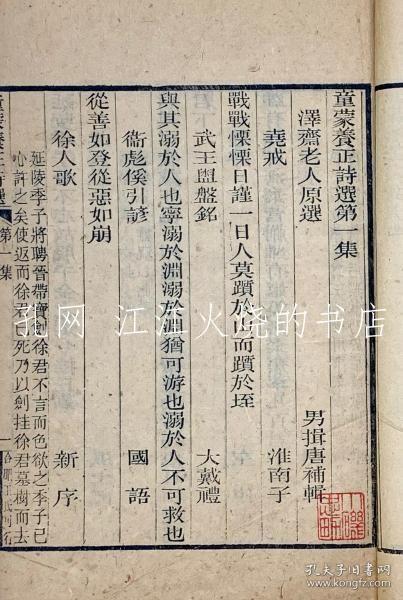 童蒙養正詩選第一集
澤齋老人原選
男揖唐補輯
堯戒
淮南子
戰戰慄慄日謹一日人莫躓於山而躓於垤
武王盥盤銘
大戴禮
與其溺於人也寧溺於淵溺於淵猶可游也溺於人不可救也
衞彪傒引諺
國語
從善如登從惡如崩
徐人歌
新序
延陵季子將聘晉帶寶劍徐君不言而色欲之季子已
心許之矣使返而徐君死乃以劍挂徐君墓樹而去
童蒙養正詩選
第一集
一
孔网 江江火烧的书店
孔夫子旧书网
www.kongfz.com